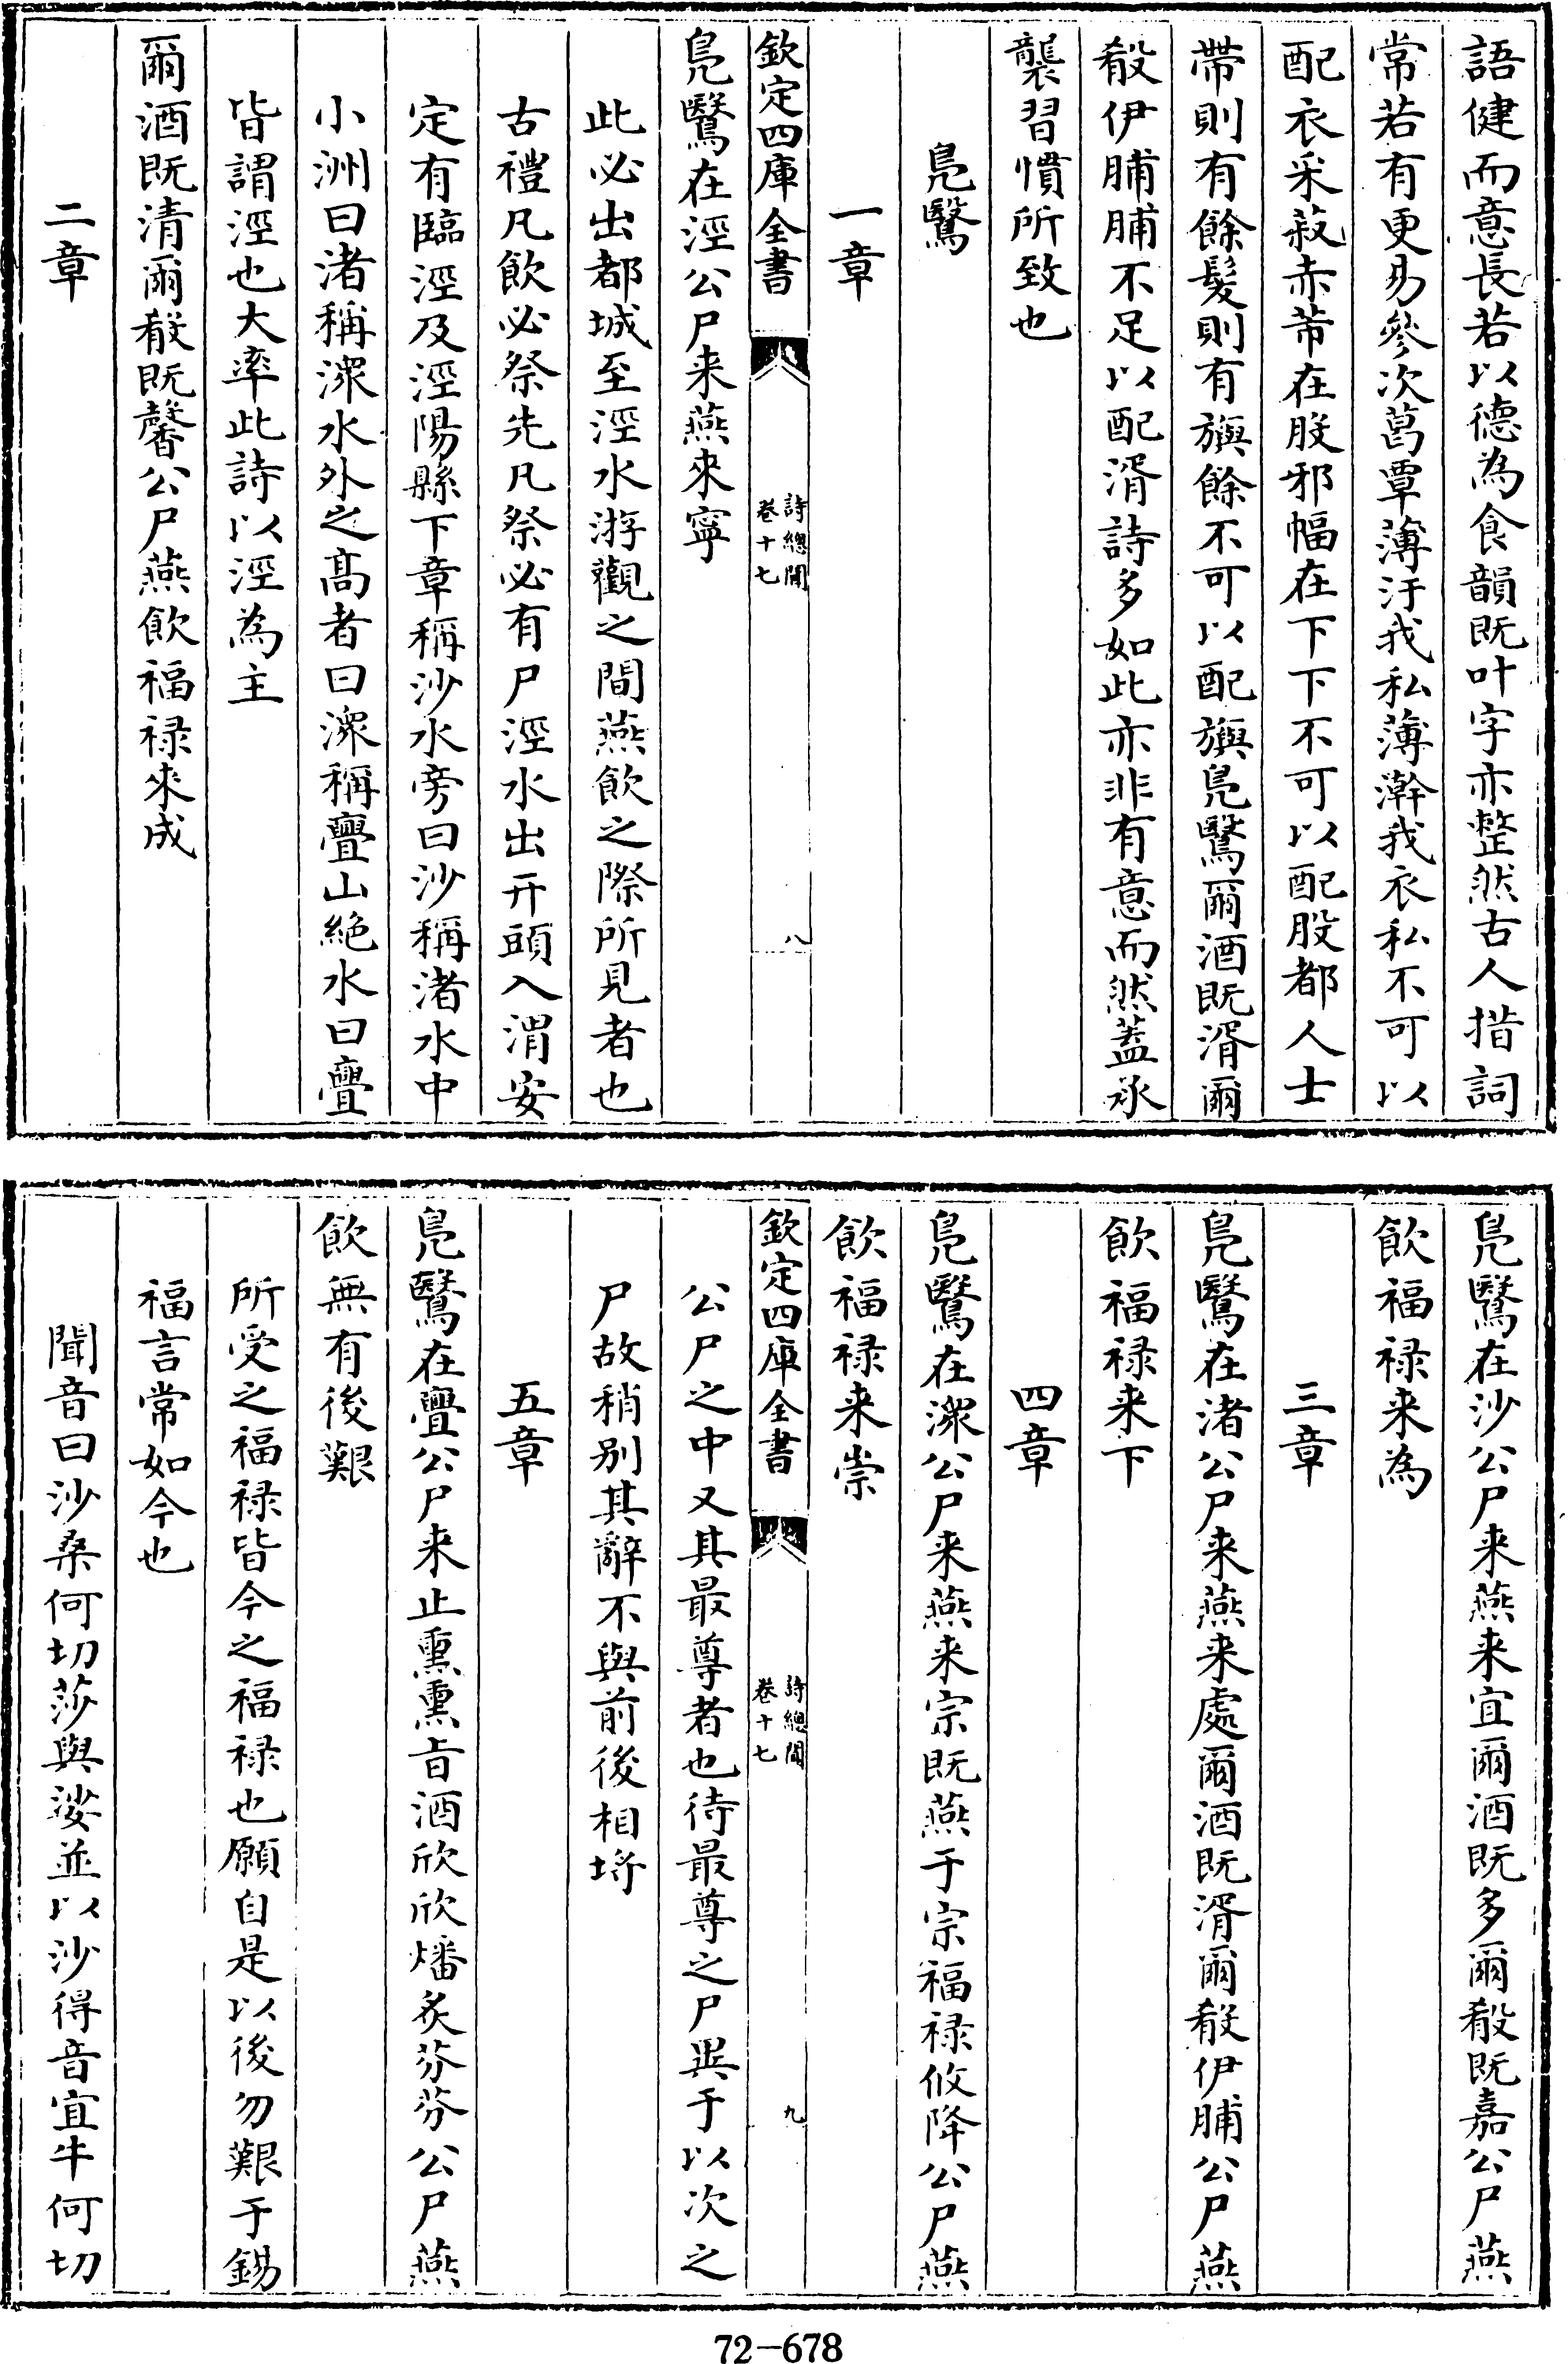 語健而意長若以德為食韻既叶字亦整然古人措詞
常若有更易參次葛覃薄汙我私薄澣我衣私不可以
配衣采菽赤芾在股邪幅在下下不可以配股都人士
帶則有餘髮則有旟餘不可以配旟鳧鷖爾酒既湑爾
殽伊脯脯不足以配湑詩多如此亦非有意而然蓋承
襲習慣所致也
鳧鷖
一章
欽定四庫全書
詩總聞
卷十七
八
鳧鷖在涇公尸来燕來寧
此必出都城至涇水游觀之間燕飲之際所見者也
古禮凡飲必祭先凡祭必有尸涇水出幵頭入渭安
定有臨涇及涇陽縣下章稱沙水旁曰沙稱渚水中
小洲曰渚稱潀水外之髙者曰潀稱亹山絶水曰亹
皆謂涇也大率此詩以涇為主
爾酒既清爾殽既馨公尸燕飲福禄來成
二章
鳧鷖在沙公尸来燕来宜爾酒既多爾殽既嘉公尸燕
飲福禄来為
三章
鳧鷖在渚公尸来燕来處爾酒既湑爾殽伊脯公尸燕
飲福禄来下
四章
鳧鷖在潀公尸来燕来宗既燕于宗福禄攸降公尸燕
飲福禄来崇
欽定四庫全書
詩總聞
卷十七
九
公尸之中又其最尊者也待最尊之尸異于以次之
尸故稍别其辭不與前後相埒
五章
鳧鷖在亹公尸来止熏熏旨酒欣欣燔炙芬芬公尸燕
飲無有後艱
所受之福禄皆今之福禄也願自是以後勿艱于錫
福言常如今也
聞音曰沙桑何切莎與娑並以沙得音宜牛何切
72-678